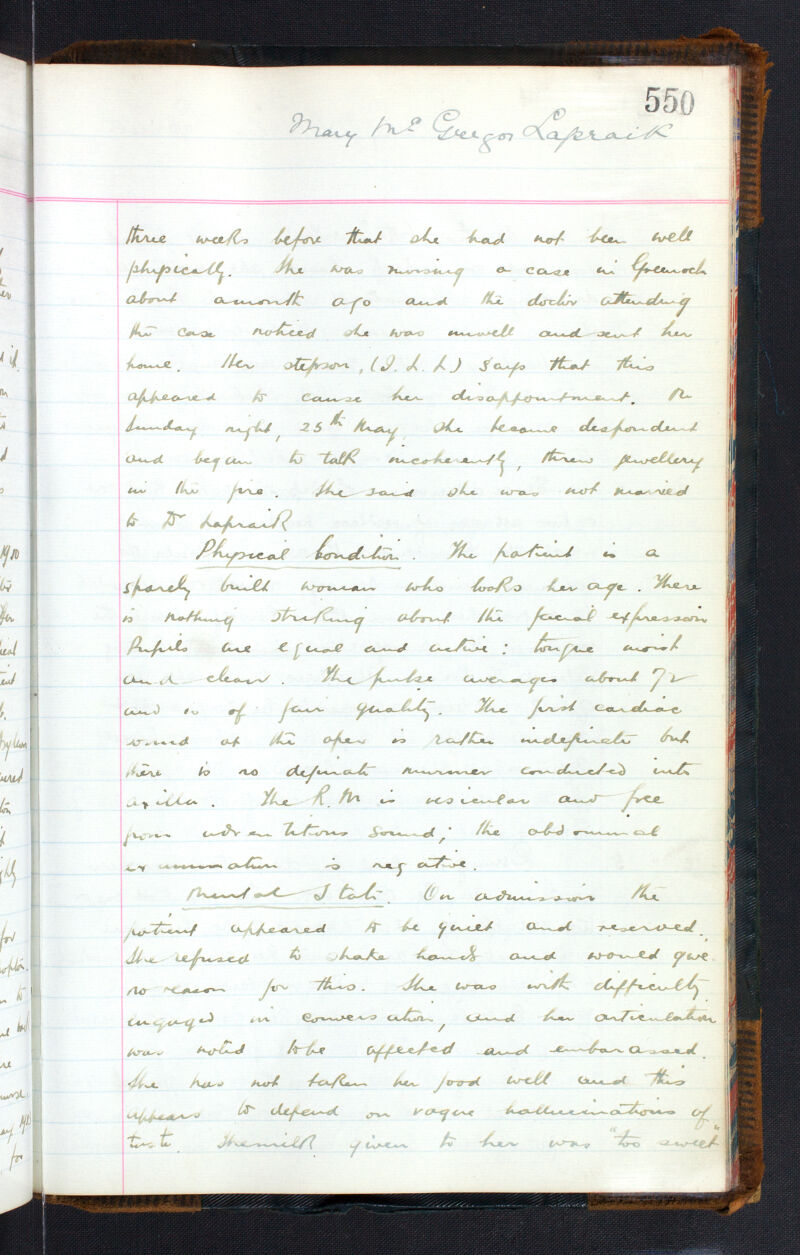 550
Mary Mc Gregor Lapraik
three weeks before that she had not been well
physically. She was nursing a case in Greenock
about a month ago and the doctor attending
the case noticed she was unwell and sent her
home. Her stepson, (J. L. L) says that this
appeared to cause her disappointment. On
Sunday night, 25th May she became despondent
and began to talk incoherently, threw jewellery
in the fire. She said she was not married
to Dr Lapraik
Physical Condition. The patient is a
sparely built woman who looks her age. There
is nothing striking about the facial expression
Pupils are equal and active: tongue moist
and clean. The pulse averages about 72
and is of fair quality. The first cardiac
sound at the apex is rather indefinate but
there is no definate murmer conducted into
axilla. The R.M is vesicular and free
from adventitious sound; the abdominal
examination is negative.
Mental State. On admission the
patient appeared to be quiet and reserved.
She refused to shake hands and would give
no reason for this. She was with difficulty
engaged in conversation, and her articulation
was noted to be affected and embarassed.
She has not taken her food well and this
appears to depend on vague hallucinations of
taste. The milk given to her was "too sweet"